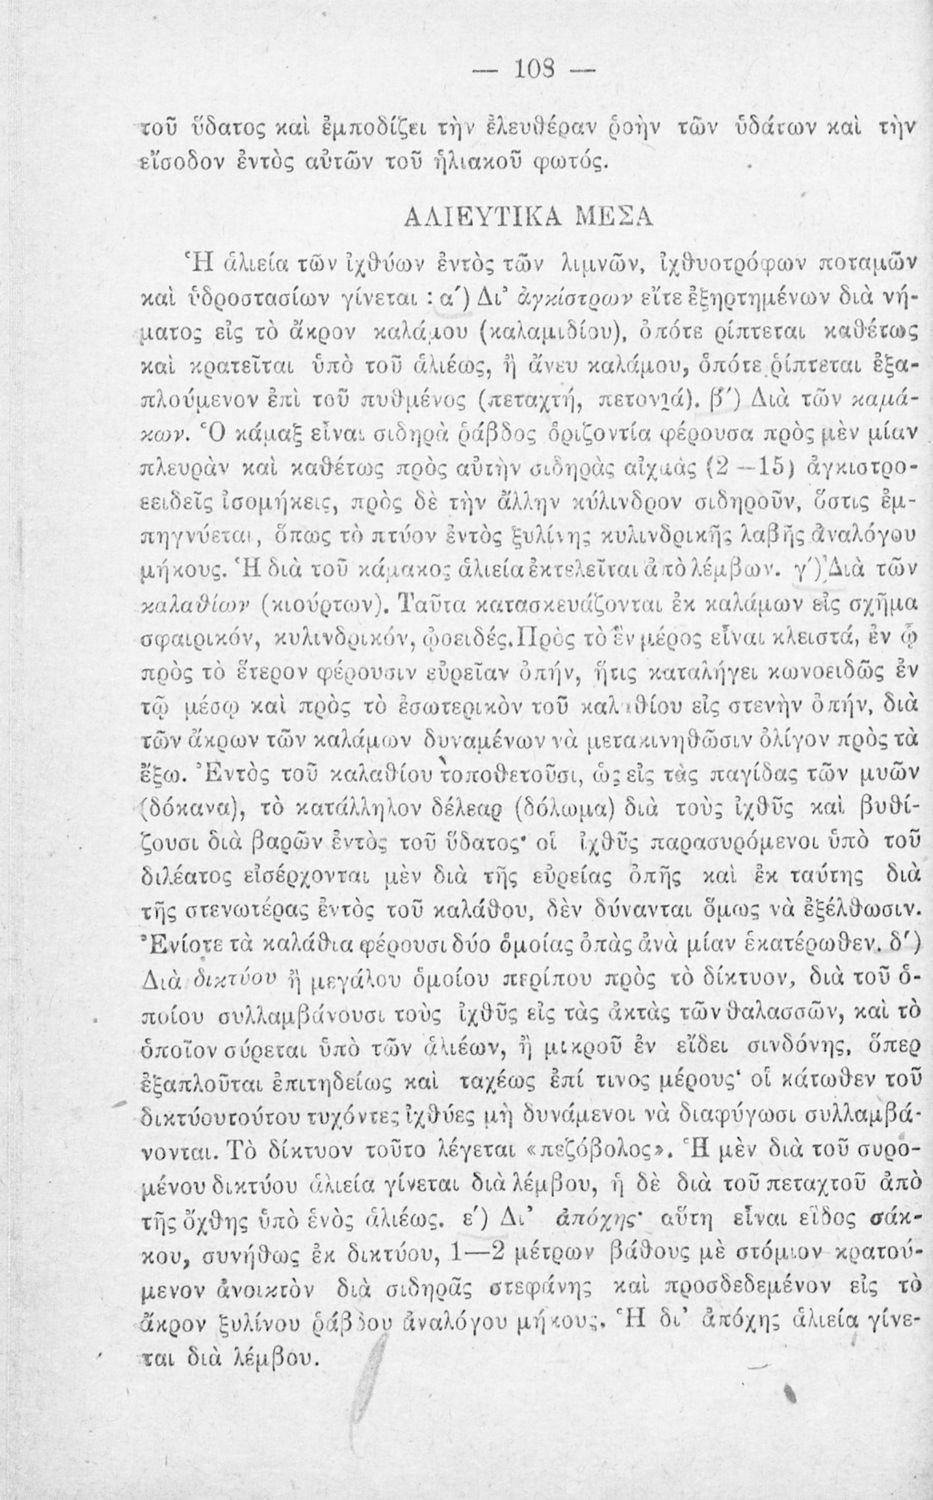 — 108 —
τοῦ ὕδατος καὶ ἐμποδίζει τὴν ἐλευθέραν ῥοὴν τῶν ὑδάτων καὶ τὴν
εἴσοδον ἐντὸς αὐτῶν τοῦ ἡλιακοῦ φωτός.
ΑΛΙΕΥΤΙΚΑ ΜΕΣΑ
Ἡ ἁλιεία τῶν ἰχθύων ἐντὸς τῶν λιμνῶν, ἰχθυοτρόφων ποταμῶν
καὶ ὑδροστασίων γίνεται : α') Δι' ἀγκίστρων εἴτε ἐξηρτημένων διὰ νή-
ματος εἰς τὸ ἄκρον καλάμου (καλαμιδίου), ὁπότε ρίπτεται καθέτως
καὶ κρατεῖται ὑπὸ τοῦ ἁλιέως, ἢ ἄνευ καλάμου, ὁπότε ῥίπτεται ἐξα-
πλούμενον ἐπὶ τοῦ πυθμένος (πεταχτή, πετονιά). β') Διὰ τῶν καμά-
κων. Ὁ κάμαξ εἶναι σιδηρὰ ῥάβδος ὁριζοντία φέρουσα πρὸς μὲν μίαν
πλευρὰν καὶ καθέτως πρὸς αὐτὴν σιδηρὰς αἰχμὰς (2 —15) ἀγκιστρο-
εειδεῖς ἰσομήκεις, πρὸς δὲ τὴν ἄλλην κύλινδρον σιδηροῦν, ὅστις ἐμ-
πηγνύεται, ὅπως τὸ πτύον ἐντὸς ξυλίνης κυλινδρικῆς λαβῆς ἀναλόγου
μήκους. Ἡ διὰ τοῦ κάμακος ἁλιεία ἐκτελεῖται ἀπὸ λέμβων. γ') Διὰ τῶν
καλαθίων (κιούρτων). Ταῦτα κατασκευάζονται ἐκ καλάμων εἰς σχῆμα
σφαιρικόν, κυλινδρικόν, ᾠοειδές. Πρὸς τὸ ἓν μέρος εἶναι κλειστά, ἐν ᾧ
πρὸς τὸ ἕτερον φέρουσιν εὐρεῖαν ὀπήν, ἥτις καταλήγει κωνοειδῶς ἐν
τῷ μέσῳ καὶ πρὸς τὸ ἐσωτερικὸν τοῦ καλαθίου εἰς στενὴν ὀπήν, διὰ
τῶν ἄκρων τῶν καλάμων δυναμένων νὰ μετακινηθῶσιν ὀλίγον πρὸς τὰ
ἔξω. Ἐντὸς τοῦ καλαθίου τοποθετοῦσι, ὡς εἰς τὰς παγίδας τῶν μυῶν
(δόκανα), τὸ κατάλληλον δέλεαρ (δόλωμα) διὰ τοὺς ἰχθῦς καὶ βυθί-
ζουσι διὰ βαρῶν ἐντὸς τοῦ ὕδατος· οἱ ἰχθῦς παρασυρόμενοι ὑπὸ τοῦ
διλέατος εἰσέρχονται μὲν διὰ τῆς εὐρείας ὀπῆς καὶ ἐκ ταύτης διὰ
τῆς στενωτέρας ἐντὸς τοῦ καλάθου, δὲν δύνανται ὅμως νὰ ἐξέλθωσιν.
Ἐνίοτε τὰ καλάθια φέρουσι δύο ὁμοίας ὀπὰς ἀνὰ μίαν ἑκατέρωθεν. δ')
Διὰ δικτύου ἢ μεγάλου ὁμοίου περίπου πρὸς τὸ δίκτυον, διὰ τοῦ ὁ-
ποίου συλλαμβάνουσι τοὺς ἰχθῦς εἰς τὰς ἀκτὰς τῶν θαλασσῶν, καὶ τὸ
ὁποῖον σύρεται ὑπὸ τῶν ἁλιέων, ἢ μικροῦ ἐν εἴδει σινδόνης, ὅπερ
ἐξαπλοῦται ἐπιτηδείως καὶ ταχέως ἐπί τινος μέρους· οἱ κάτωθεν τοῦ
δικτύου τούτου τυχόντες ἰχθύες μὴ δυνάμενοι νὰ διαφύγωσι συλλαμβά-
νονται. Τὸ δίκτυον τοῦτο λέγεται «πεζόβολος». Ἡ μὲν διὰ τοῦ συρο-
μένου δικτύου ἁλιεία γίνεται διὰ λέμβου, ἡ δὲ διὰ τοῦ πεταχτοῦ ἀπὸ
τῆς ὄχθης ὑπὸ ἑνὸς ἁλιέως. ε') Δι' ἀπόχης· αὕτη εἶναι εἶδος σάκ-
κου, συνήθως ἐκ δικτύου, 1—2 μέτρων βάθους μὲ στόμιον κρατού-
μενον ἀνοικτὸν διὰ σιδηρᾶς στεφάνης καὶ προσδεδεμένον εἰς τὸ
ἄκρον ξυλίνου ῥάβδου ἀναλόγου μήκους. Ἡ δι' ἀπόχης ἁλιεία γίνε-
ται διὰ λέμβου.